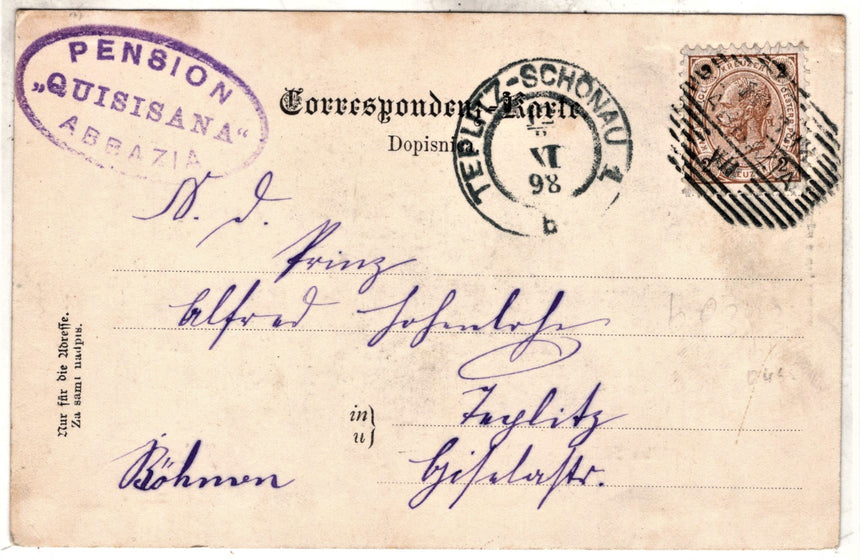 PENSION
„QUISISANA“
ABBAZIA
Correspondenz-Karte
Dopisnica
TEPLITZ-SCHÖNAU 1
VI
98
b
S. d.
Prinz
Alfred Hohenlohe
Nur für die Adresse.
Za sami nadpis.
in
u
Teplitz
Böhmen
Giselastr.